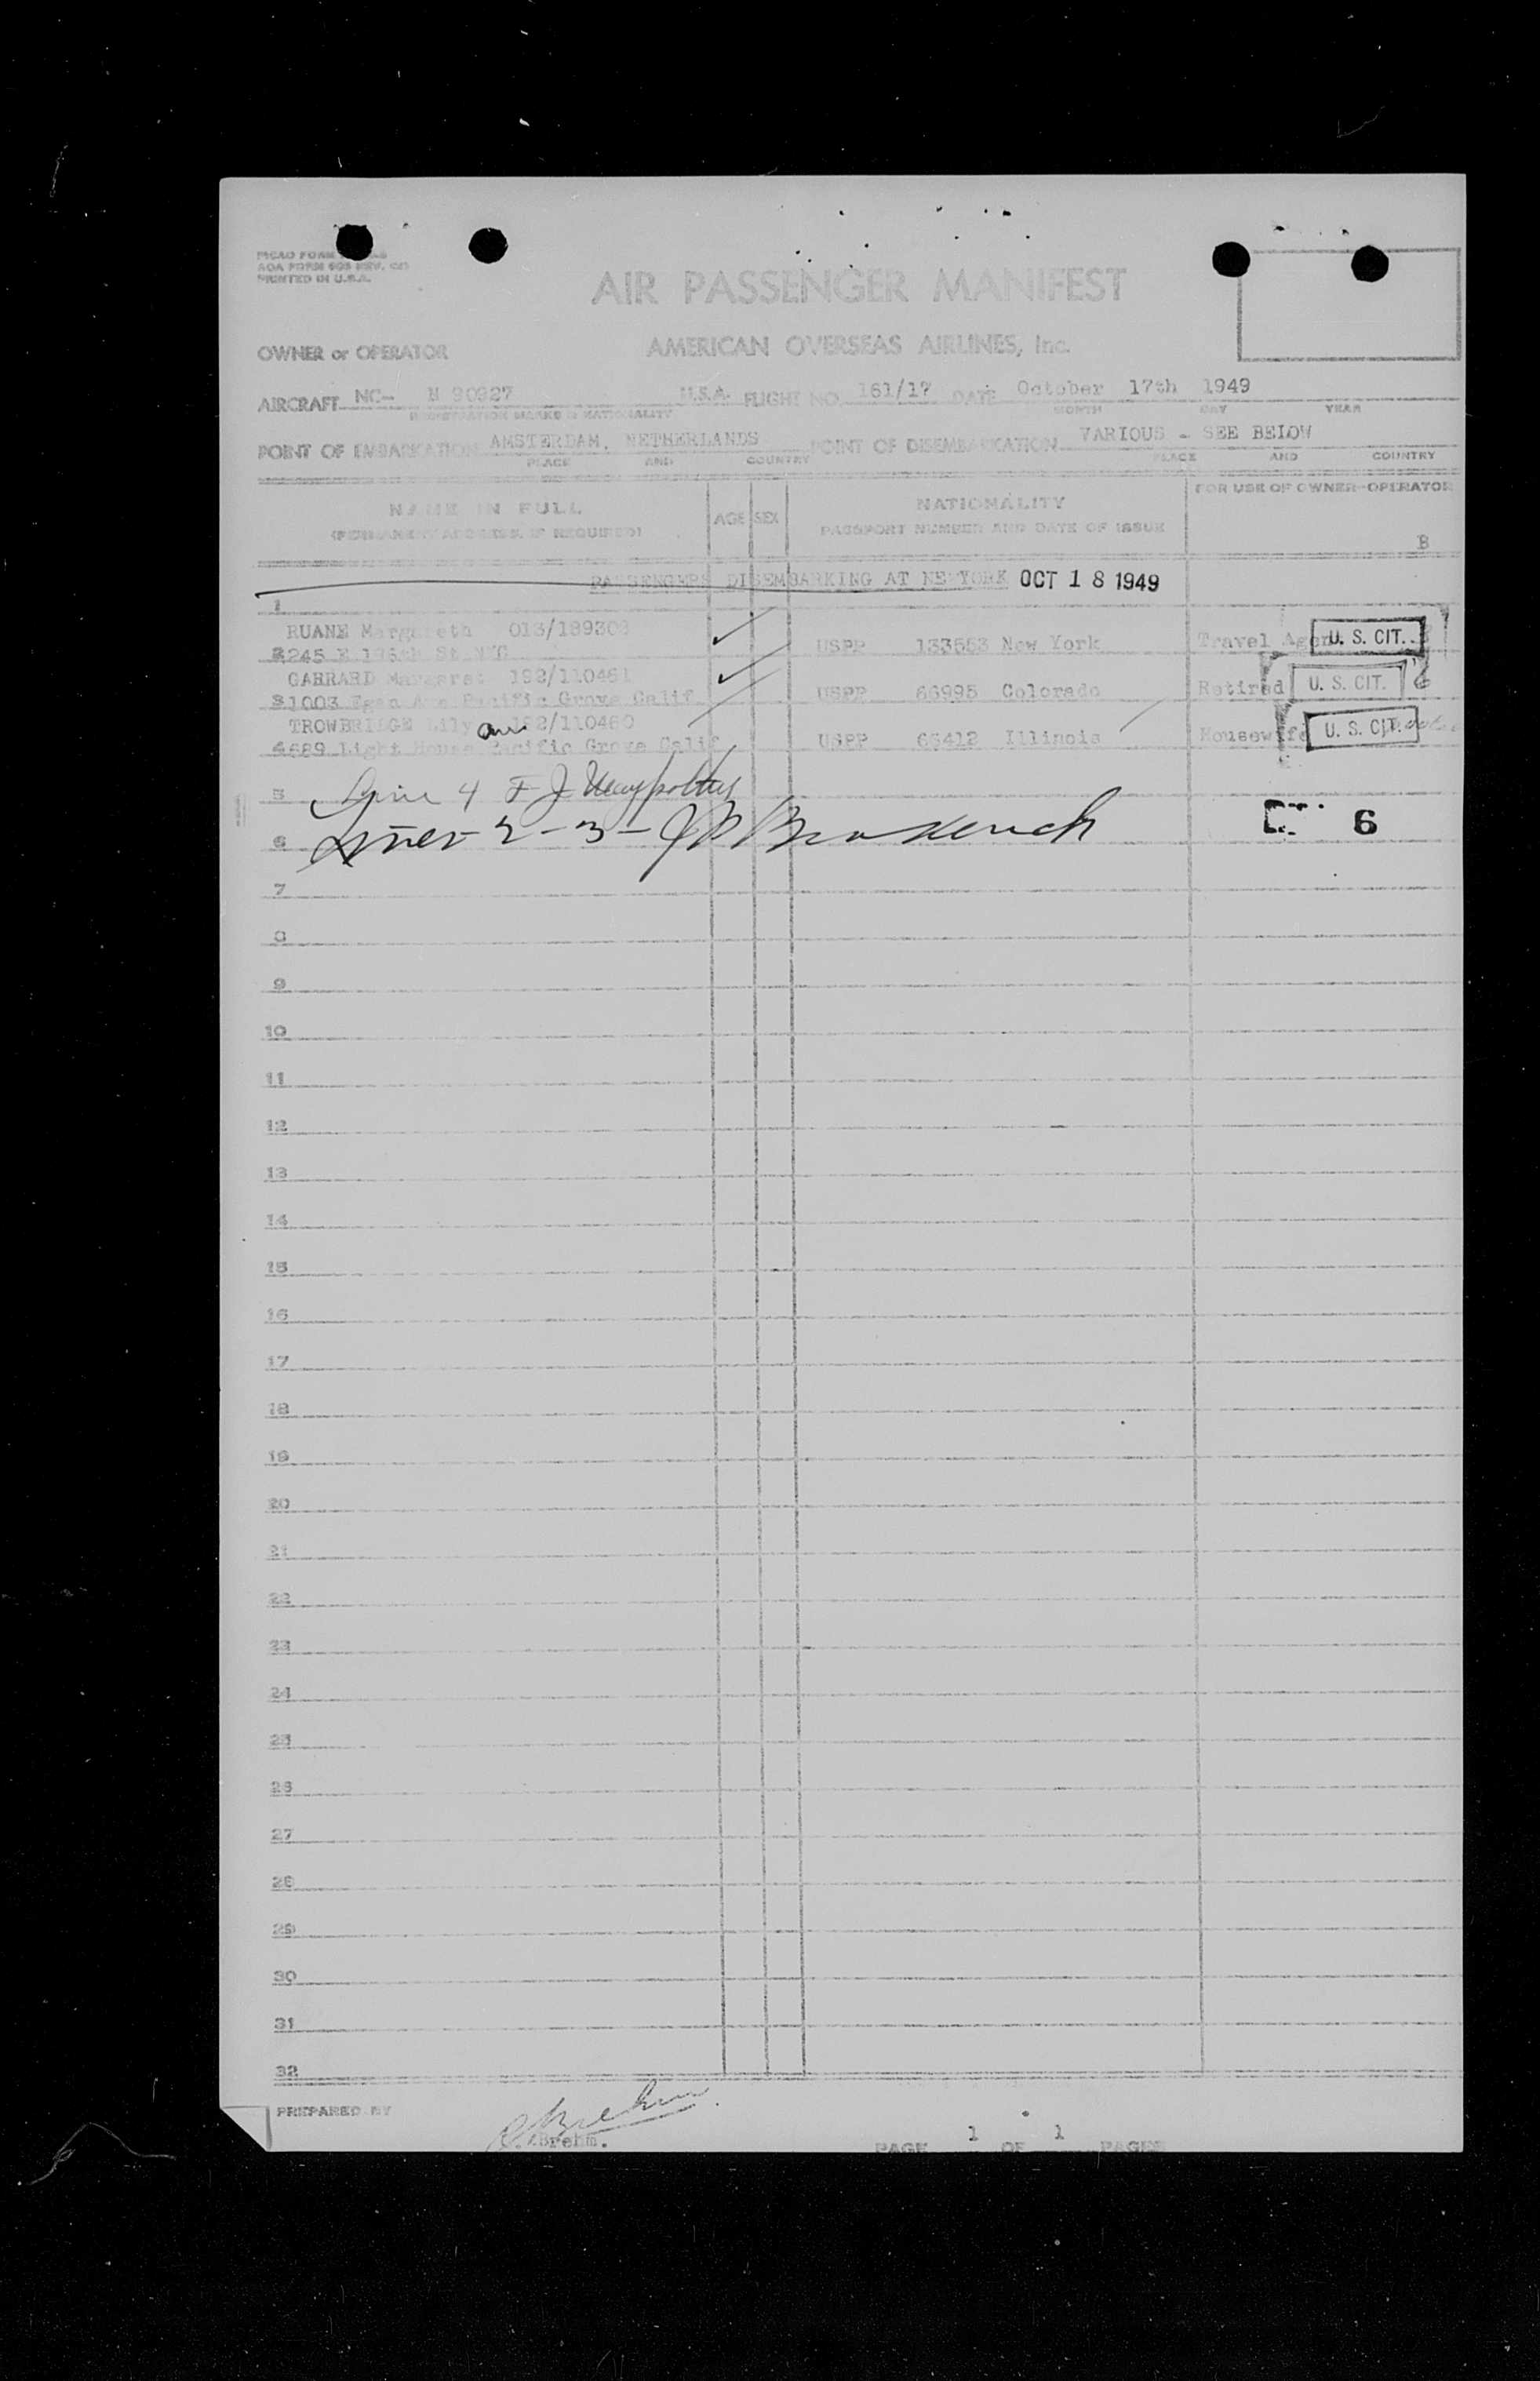 AOA FORM 605 REV.
PRINTED IN U.S.A.
AIR PASSENGER MANIFEST
OWNER or OPERATOR AMERICAN OVERSEAS AIRLINES, Inc.
AIRCRAFT NC- N 90927 U.S.A. FLIGHT NO. 161/17 DATE October 17th 1949
REGISTRATION MARKS & NATIONALITY MONTH DAY YEAR
POINT OF EMBARKATION AMSTERDAM, NETHERLANDS POINT OF DISEMBARKATION VARIOUS - SEE BELOW
PLACE AND COUNTRY PLACE AND COUNTRY
NAME IN FULL AGE SEX NATIONALITY FOR USE OF OWNER-OPERATOR
(PERMANENT ADDRESS, IF REQUIRED) PASSPORT NUMBER AND DATE OF ISSUE
B
PASSENGERS DISEMBARKING AT NEWYORK OCT 18 1949
1
RUANE Margareth 013/189309
2 245 E St NYC USPP 133553 New York Travel Agent U. S. CIT.
GARRARD Margaret 192/110461
3 1003 Egan Ave Pacific Grove Calif USPP 66995 Colorado Retired U. S. CIT.
TROWBRIDGE Lily ann 192/110460
4 689 Light House Pacific Grove Calif USPP 66412 Illinois Housewife U. S. CIT.
5 Line 4 F J
6 Lines 2 - 3 - 6
7
8
9
10
11
12
13
14
15
16
17
18
19
20
21
22
23
24
25
26
27
28
29
30
31
32
PREPARED BY
C. Brehm. PAGE 1 OF 1 PAGES